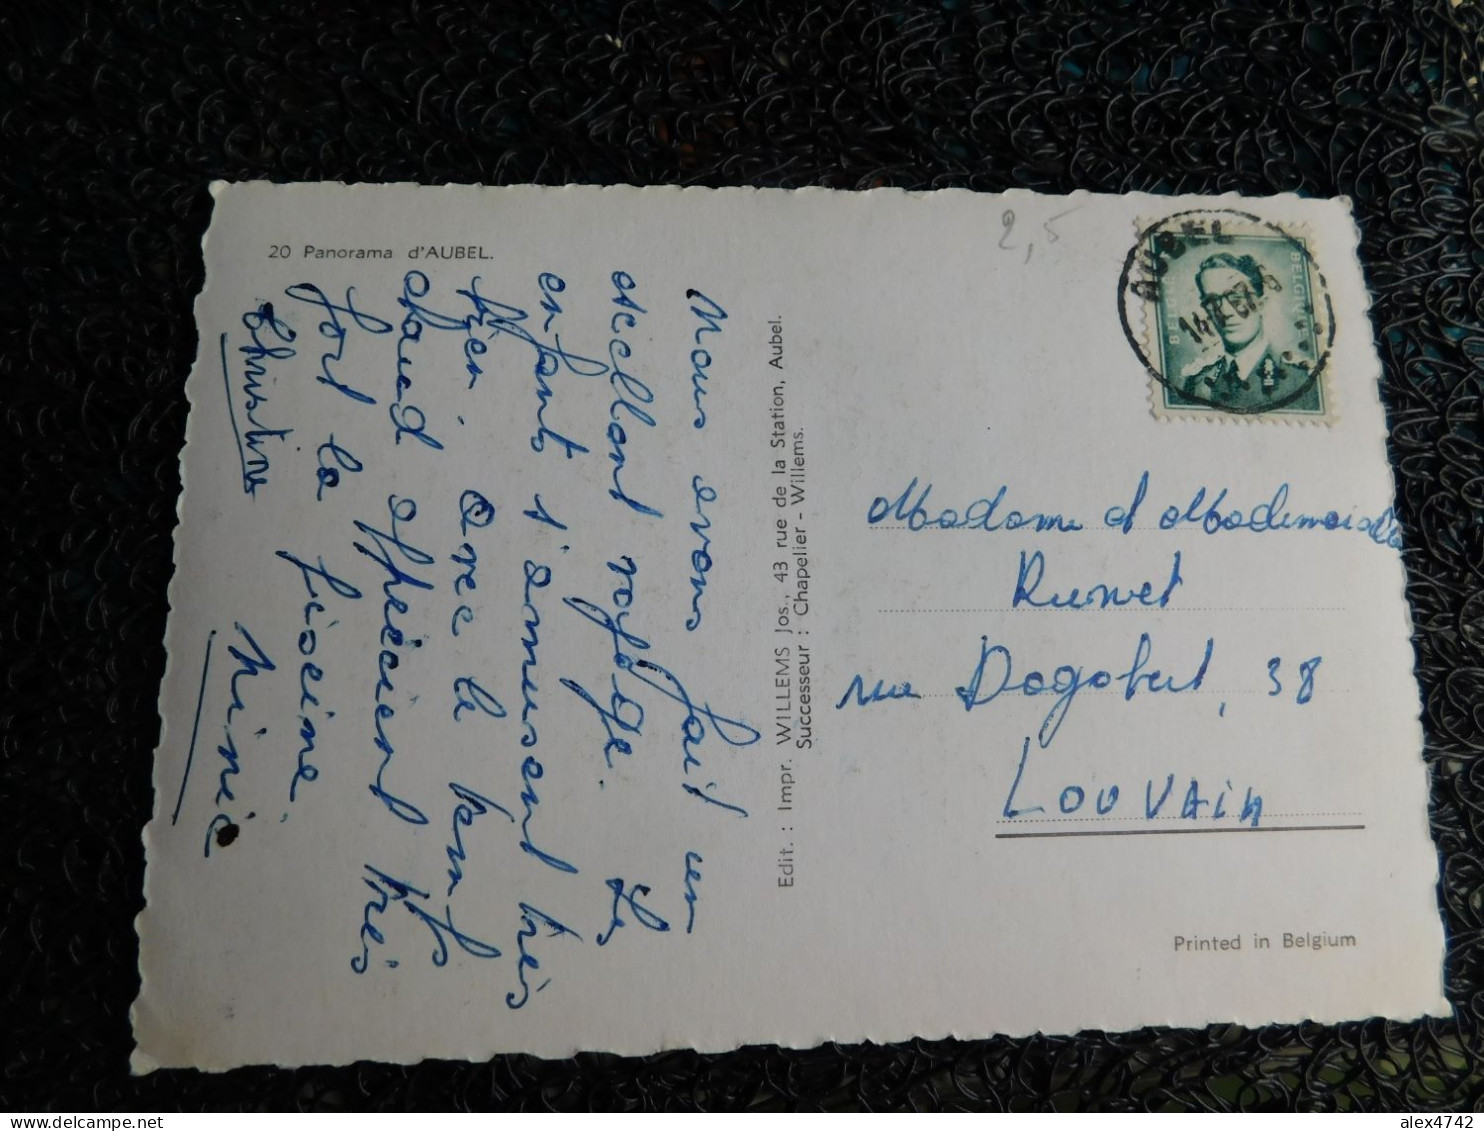 20 Panorama d'AUBEL.
Nous avons fait un
excellent voyage. Les
enfants s'amusent très
bien. Avec le temps
chaud apprécient très
fort la piscine.
Christine
Mimie
Edit. : Impr. WILLEMS Jos., 43 rue de la Station, Aubel.
Successeur : Chapelier - Willems.
2,5
AUBEL
BELGIQUE
Madame et Mademoiselle
rue Dagobert, 38
LOUVAIN
Printed in Belgium
alex4742